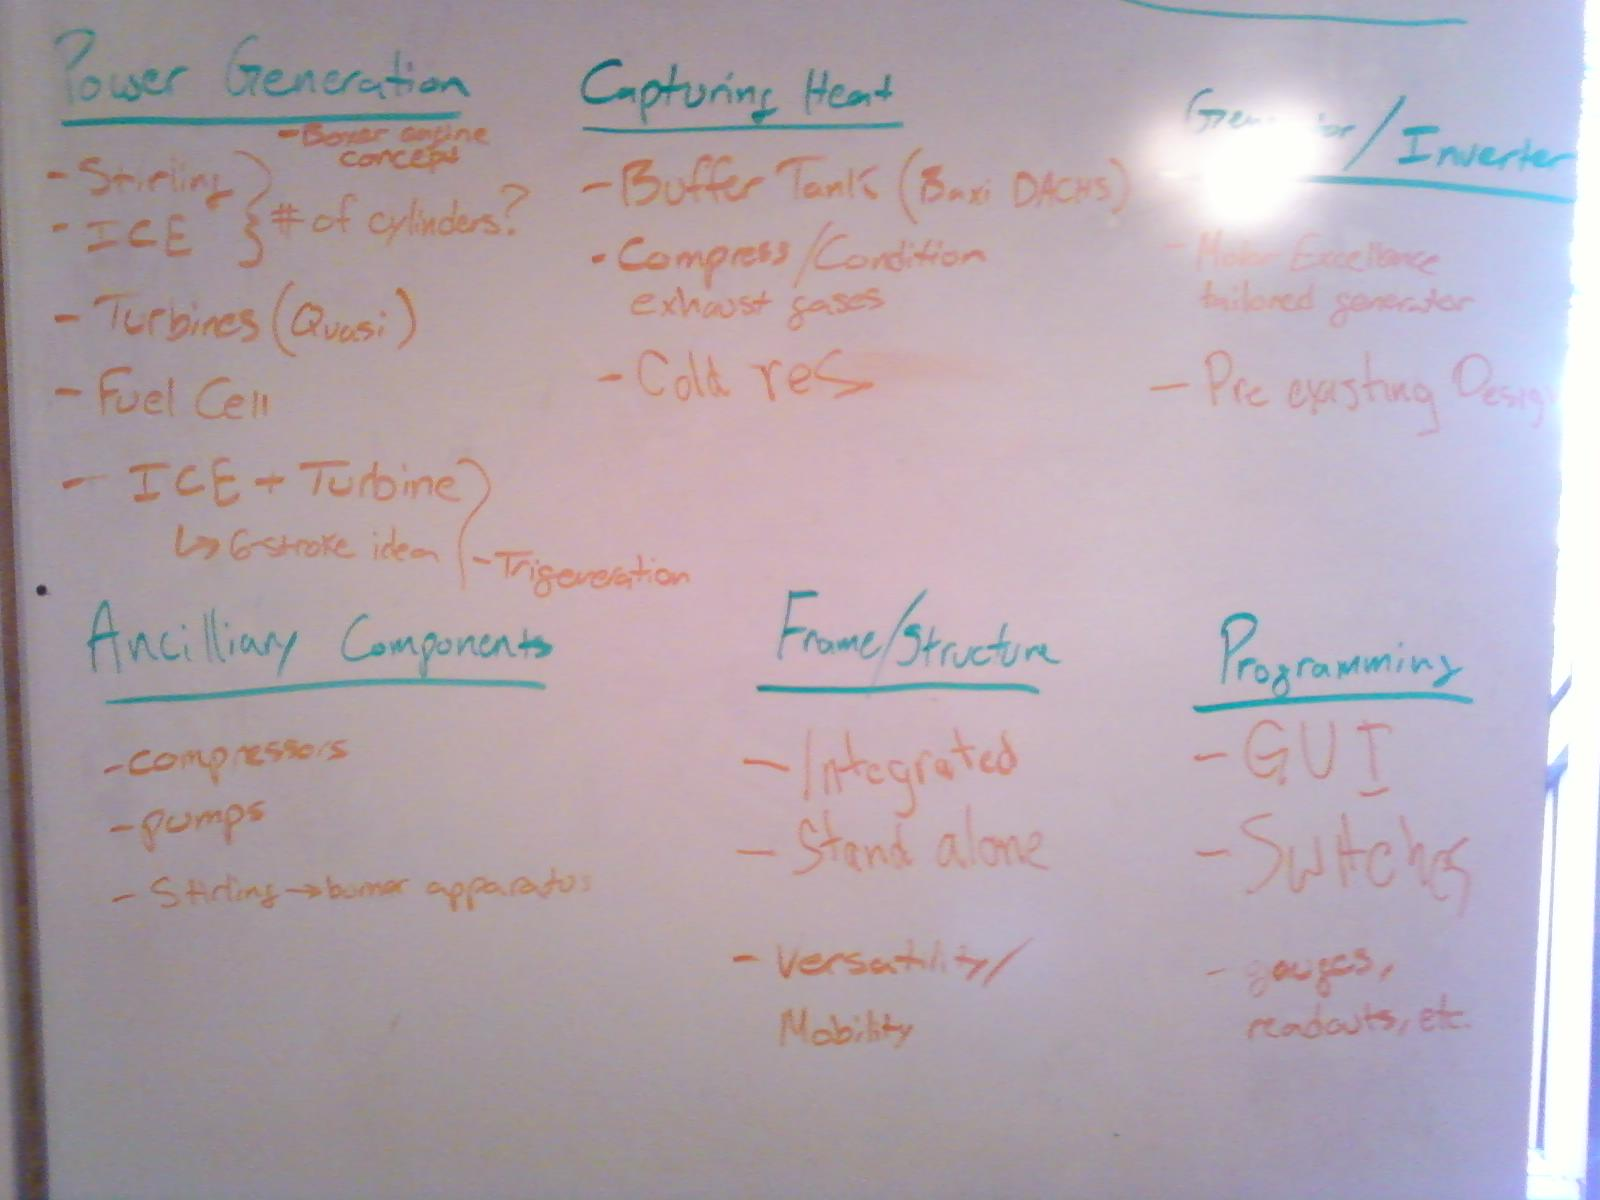 Power Generation
- Boxer engine
concept
- Stirling
- ICE } # of cylinders?
- Turbines (Quasi)
- Fuel Cell
- ICE + Turbine
↳ 6-stroke idea
- Trigeneration
Capturing Heat
- Buffer Tank (Baxi DACHS)
- Compress/Condition
exhaust gases
- Cold res
/Inverter
- Motor Excellence
tailored generator
- Pre existing Desig
Ancilliary Components
- compressors
- pumps
- Stirling → burner apparatus
Frame/Structure
- Integrated
- Stand alone
- Versatility/
Mobility
Programming
- GUI
- Switches
- gauges,
readouts, etc.